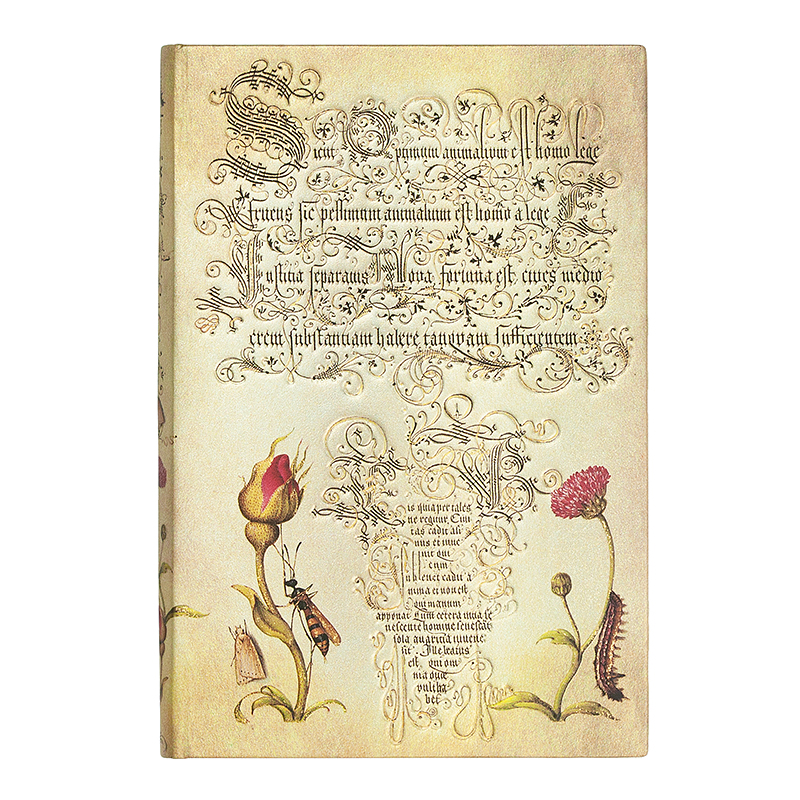 Sicut Optimum animalium est homo lege
fruens sic pessimum animalium est homo a lege et
Iustitia separatus Nova fortuna est, cives medio
crem substantiam habere tanquam sufficientem
is quia per tales
ne regitur. Civi
tas cadit asi
nus et inve
nit qui
eum
sublevet cadit a
nima et non est
qui manum
apponat Cum cetera vitia se
nescente homine senescat
sola
sit. Ille beatus
est, qui om
nia que
vult ha
bet